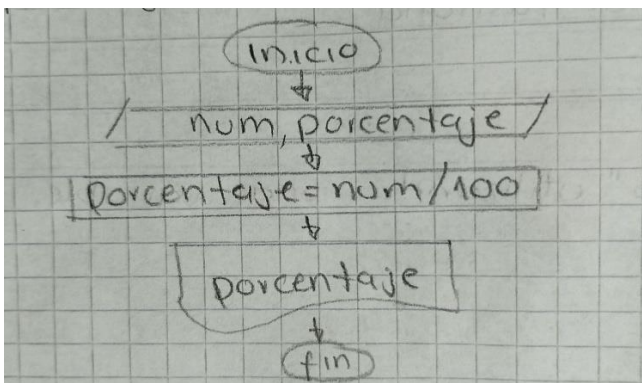 inicio
num, porcentaje
porcentaje = num/100
porcentaje
fin